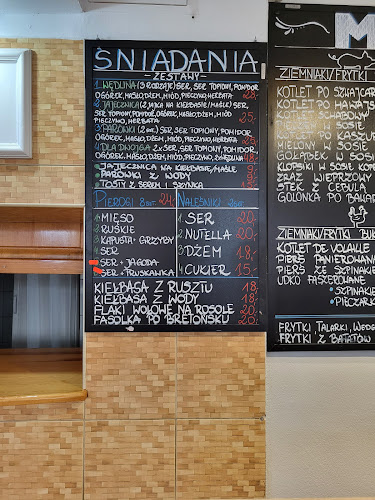 ŚNIADANIA
-ZESTAWY-
1. WĘDLINA (3 RODZAJE) SER, SER TOPIONY, POMIDOR
OGÓREK, MASŁO, DŻEM, MIÓD, PIECZYWO, HERBATA 25.-
2. JAJECZNICA (2 JAJKA NA KIEŁBASIE/MAŚLE) SER,
SER TOPIONY, POMIDOR, OGÓREK, MASŁO, DŻEM, MIÓD,
PIECZYWO, HERBATA 25.-
3. PARÓWKI (2 SZT.) SER, SER TOPIONY, POMIDOR
OGÓREK, MASŁO, DŻEM, MIÓD, PIECZYWO, HERBATA
4. DLA DWOJGA 2x SER, SER TOPIONY, POMIDOR
OGÓREK, MASŁO, DŻEM, MIÓD, PIECZYWO, 48.-
JAJECZNICA NA KIEŁBASIE/MAŚLE
PARÓWKI Z WODY
TOSTY Z SEREM I SZYNKĄ 15.-
PIEROGI 8 SZT. 24.-
1. MIĘSO
2. RUSKIE
3. KAPUSTA-GRZYBY
4. SER
SER + JAGODA
SER + TRUSKAWKA
NALEŚNIKI 2SZT.
1. SER 20.-
2. NUTELLA 20.-
3. DŻEM 18.-
4. CUKIER 15.-
KIEŁBASA Z RUSZTU 18.-
KIEŁBASA Z WODY 18.-
FLAKI WOŁOWE NA ROSOLE 20.-
FASOLKA PO BRETOŃSKU 20.-
M
ZIEMNIAKI/FRYTKI
KOTLET PO SZWAJCAR
KOTLET PO HAWAJS
KOTLET SCHABOWY
KARKÓWKA W SOSIE
MIELONY W SOSIE
GOŁĄBEK W SOSI
KLOPSIKI W SOSIE KOPE
ZRAZ WIEPRZOWY
STEK Z CEBULĄ
GOLONKA PO BAWAR
ZIEMNIAKI/FRYTKI BUK
KOTLET DE VOLAILLE
PIERŚ PANIEROWANA
PIERŚ ZE SZPINAKIE
UDKO FASZEROWANE
SZPINAKIE
PIECZARK
FRYTKI, TALARKI, WEDG
FRYTKI Z BATATÓW